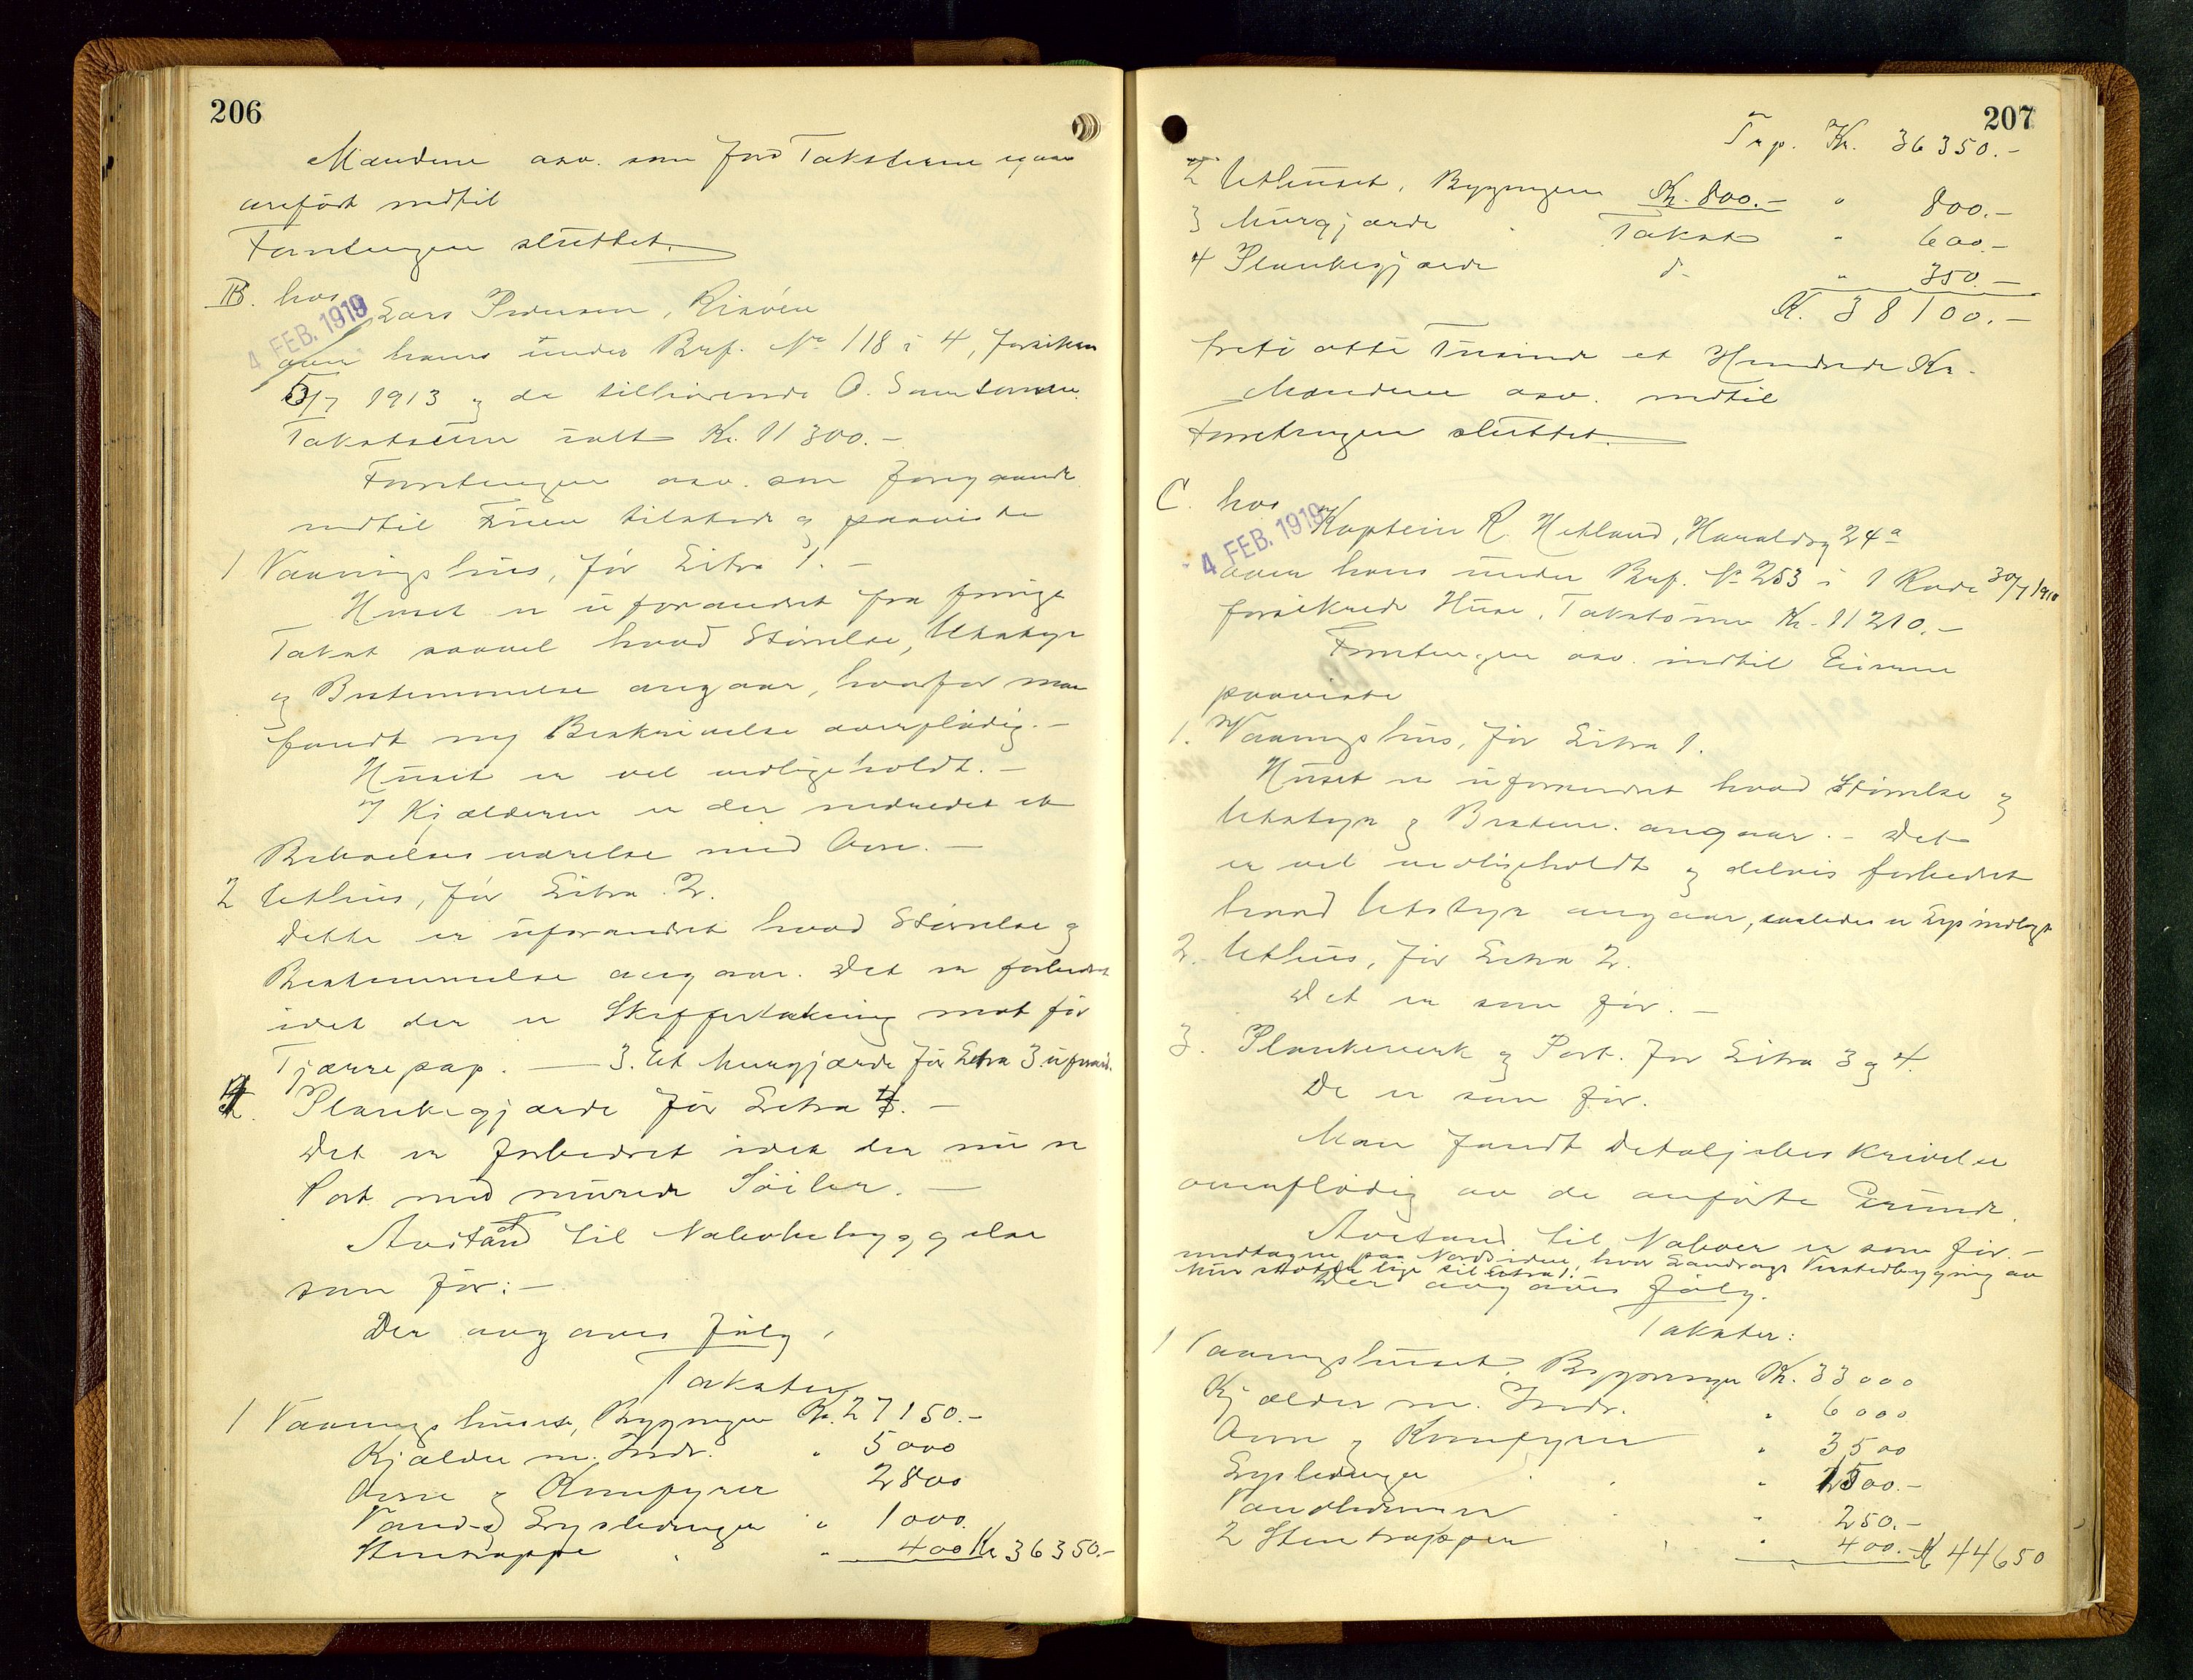 206
Mændene osv. som Jord Taksterne
anført indtil
Forretningen sluttet.
B. hos
4 FEB. 1919
Lars Pedersen, Risøen
over hans under Brf. No 118 i 4, forsikr
5/7 1913 og de tilhørende O.
Takstsum ialt Kr. 11 300.-
Forretningen osv. som foregaaende
indtil Fruen tilstede og paaviste
1 Vaaningshus, før Litra 1. -
Huset er uforandret fra forrige
Takst saavel hvad Størrelse, Utstyr
og Bestemmelse angaar, hvorfor man
fandt ny Beskrivelse overflødig. -
Huset er vel vedligeholdt. -
I Kjælderen er der indredet et
Beboelsesværelse med Ovn. -
2 Uthus, før Litra 2.
Dette er uforandret hvad Størrelse og
Bestemmelse angaar. Det er forbedret
idet der er Skiffertækning mot før
Tjærepap. — 3. Et Murgjærde før Litra 3. uforand.
4. Plankegjærde før Litra 4. -
Det er forbedret idet der nu er
Port med murede Søiler. -
Avstand til Nabobebyggelse
som før: -
Der avgaves følg.
Takster
1 Vaaningshuset, Bygningen Kr. 27150.-
Kjælder m. Indr. " 5000
Ovne og Komfyrer 2800
Vand- og Lysledninger " 1000.
Stentrappe " 400 Kr 36350.-
207
Trp. Kr. 36350.-
2 Uthuset, Bygningen Kr. 800.- " 800.-
3 Murgjærde Takst " 600.-
4 Plankegjærde d- " 350.-
K. 38100.-
treti otte Tusinde et Hundrede Kr.
Mændene osv. indtil
Forretningen sluttet.
C. hos
4 FEB. 1919
Kaptein R. Hetland, Haraldsg 24a
over hans under Brf. No 253 i 1 Rode 30/7 1910
forsikrede Huse, Takstsum Kr. 11210.-
Forretningen osv. indtil Eieren
paaviste
1. Vaaningshus, før Litra 1.
Huset er uforandret hvad Størrelse og
Utstyr og Bestem. angaar. - Det
er vel vedligeholdt og delvis forbedret
hvad Utstyr angaar, saaledes er Lys indlagt
2. Uthus, før Litra 2.
Det er som før. -
3. Plankeverk og Port. før Litra 3 og 4.
De er som før.
Man fandt Detaljebeskrivelse
overflødig av de anførte Grunde.
Avstand til Naboer er som før. -
undtagen paa Nordsiden, hvor Verkstedbygning av
Mur støter lige til Litra 1.
Der avgaves følg.
Takster:
1 Vaaningshuset, Bygningen K. 33000
Kjælder m. Indr. " 6000
Ovne og Komfyrer " 3500
Lysledninger " 1500.-
Vandledninger " 250.-
2 Stentrapper " 400.- K 44650